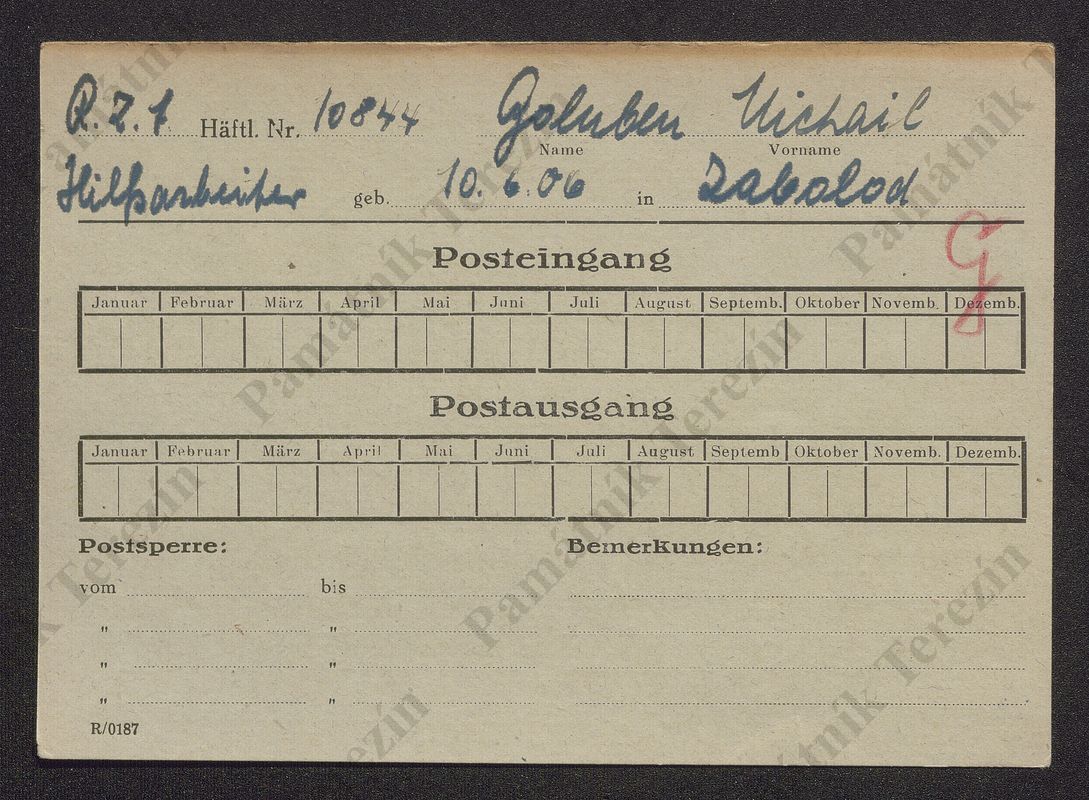 R. Z. 1 Häftl. Nr. 10844 Goluben Michail
Name Vorname
Hilfsarbeiter geb. 10. 6. 06 in Zabolod
G
Posteingang
Januar Februar März April Mai Juni Juli August Septemb. Oktober Novemb. Dezemb.
Postausgang
Januar Februar März April Mai Juni Juli August Septemb Oktober Novemb. Dezemb.
Postsperre: Bemerkungen:
vom bis
" "
" "
" "
R/0187
Památník Terezín